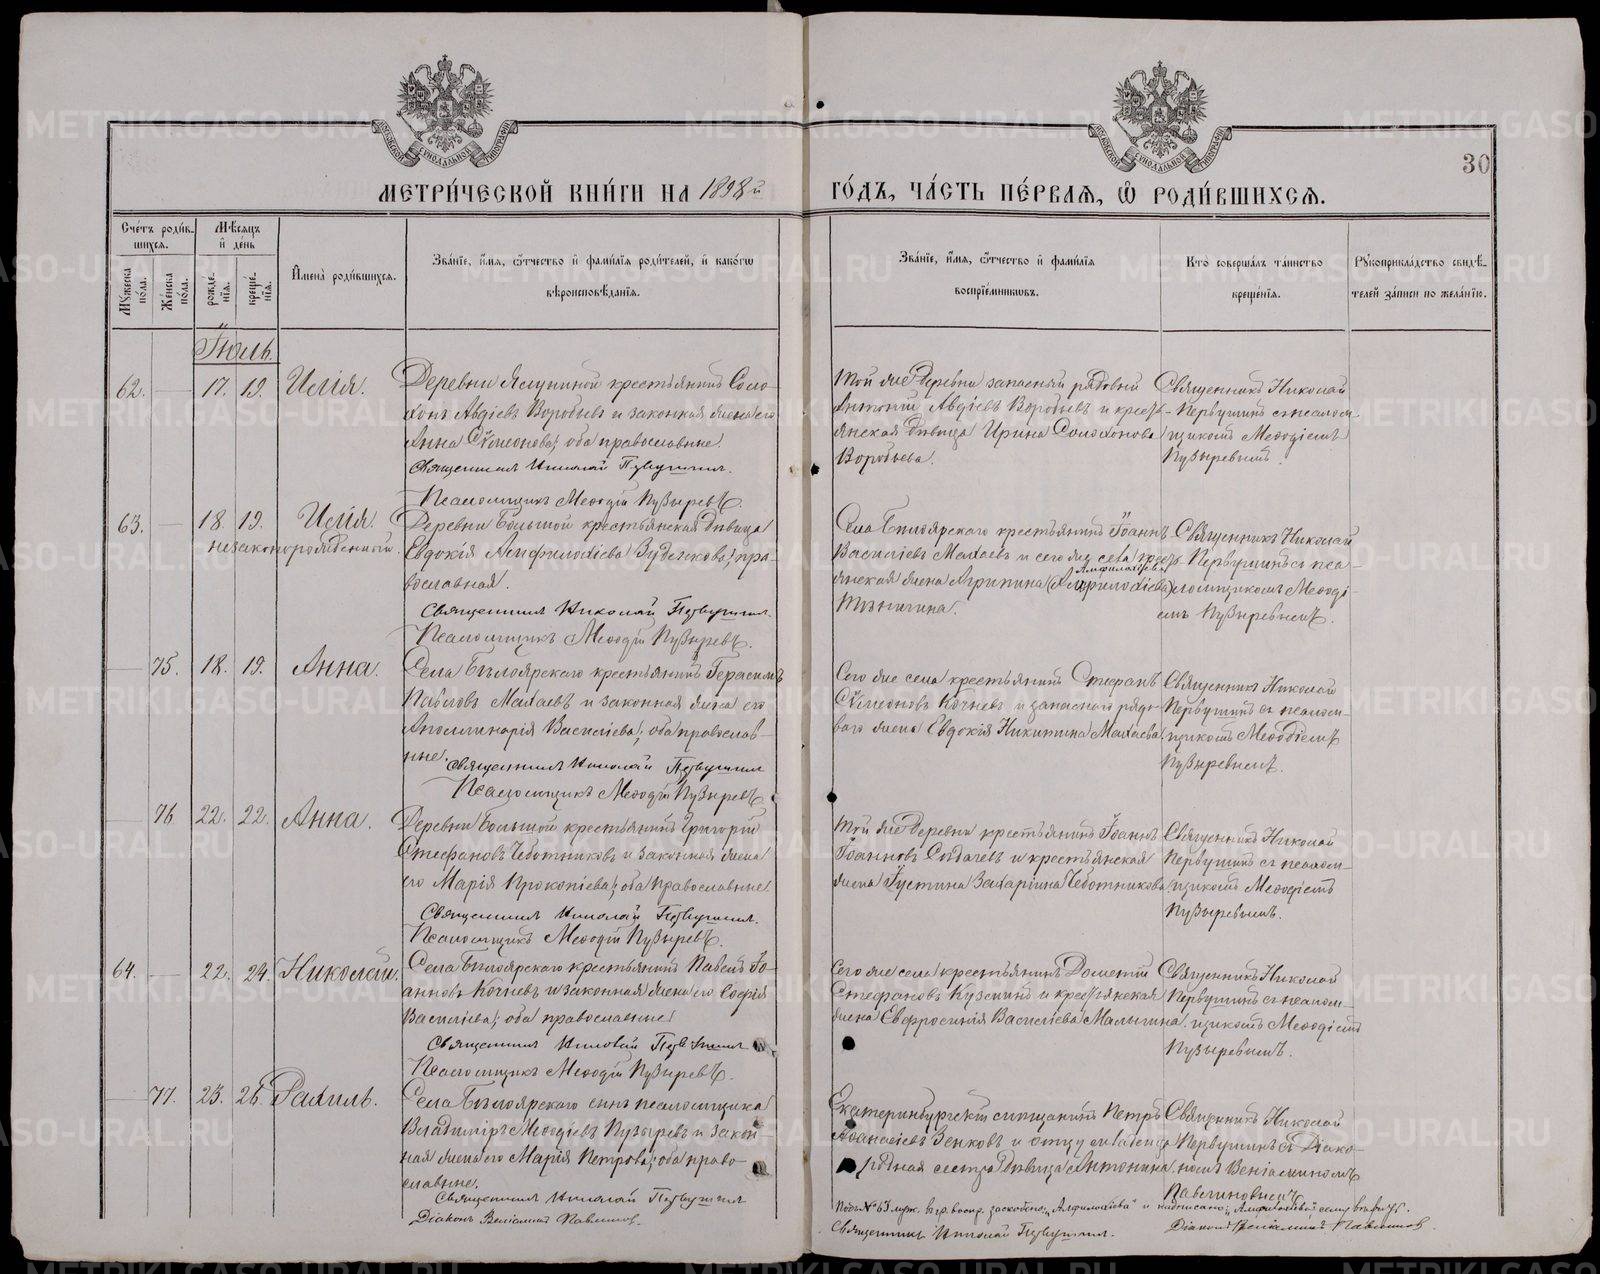 МЕТРИ́ЧЕСКОЙ КНИ́ГИ НА 1898й
ГО́ДЪ, ЧА́СТЬ ПЕ́РВАѦ, Ѡ҆ РОДИ́ВШИХСѦ.
30
Сче́тъ роди́в-
шихсѧ.
Мꙋжеска по́ла.
Же́нска по́ла.
Мѣ́сѧцъ и҆ де́нь
рожде́-
нїѧ.
креще́-
нїѧ.
И҆мена̀ роди́вшихсѧ.
Зва́нїе, и҆́мѧ, ѻ҆́тчество и҆ фами́лїѧ роди́телей, и҆ како́гѡ
вѣроисповѣ́данїѧ.
Зва́нїе, и҆́мѧ, ѻ҆́тчество и҆ фами́лїѧ
воспрїе́мникѡвъ.
Кто̀ соверша́лъ та́инство
креще́нїѧ.
Рꙋкоприкла́дство свидѣ́-
телей за́писи по жела́нїю.
Іюль.
62. 17. 19. Илія.
Деревни крестьянинъ Соло-
хонъ Авдіевъ Воробьевъ и законная жена его
Анна Симеонова; оба православные.
Священникъ Николай Первушинъ.
Псаломщикъ Меѳодій Пузыревъ.
Той же деревни запасный рядовой
Антоній Авдіевъ Воробьевъ и кресть-
янская дѣвица Ирина Солохонова
Воробьева.
Священникъ Николай
Первушинъ съ псалом-
щикомъ Меѳодіемъ
Пузыревымъ.
63. 18. 19. Илія.
незаконнорожденный.
Деревни Большой крестьянская дѣвица
Евдокія Амфилохіева; пра-
вославная.
Священникъ Николай Первушинъ.
Псаломщикъ Меѳодій Пузыревъ.
Села Бѣлоярскаго крестьянинъ Іоаннъ
Василіевъ Махаевъ и сего же села кресть-
янская жена Агрипина
Священникъ Николай
Первушинъ съ пса-
ломщикомъ Меѳоді-
емъ Пузыревымъ.
75. 18. 19. Анна.
Села Бѣлоярскаго крестьянинъ Герасимъ
Павловъ Махаевъ и законная жена его
Аполлинарія Василіева; оба православ-
ные. Священникъ Николай Первушинъ
Псаломщикъ Меѳодій Пузыревъ.
Сего же села крестьянинъ Стефанъ
Симеоновъ Кочневъ и запаснаго рядо-
ваго жена Евдокія Никитина Махаева.
Священникъ Николай
Первушинъ съ псалом-
щикомъ Меѳодіемъ
Пузыревымъ.
76. 22. 22. Анна.
Деревни Большой крестьянинъ Григорій
Стефановъ Чеботниковъ и законная жена
его Марія Прокопіева; оба православные.
Священникъ Николай Первушинъ.
Псаломщикъ Меѳодій Пузыревъ.
Той же деревни крестьянинъ Іоаннъ
Іоанновъ и крестьянская
жена Іустина Захаріина Чеботникова.
Священникъ Николай
Первушинъ съ псалом-
щикомъ Меѳодіемъ
Пузыревымъ.
64. 22. 24. Николай.
Села Бѣлоярскаго крестьянинъ Павелъ Іо-
анновъ Кочневъ и законная жена его Софія
Василіева; оба православные.
Священникъ Николай Первушинъ
Псаломщикъ Меѳодій Пузыревъ.
Сего же села крестьянинъ Дометій
Стефановъ Кузнинъ и крестьянская
жена Евфросинія Василіева Малыгина.
Священникъ Николай
Первушинъ съ псалом-
щикомъ Меѳодіемъ
Пузыревымъ.
77. 23. 26. Рахиль.
Села Бѣлоярскаго сынъ псаломщика
Владиміръ Меѳодіевъ Пузыревъ и закон-
ная жена его Марія Петрова; оба право-
славные.
Священникъ Николай Первушинъ
Діаконъ Веніаминъ Павлиновъ.
Екатеринбургскій мѣщанинъ Петръ
Аѳанасіевъ Зенковъ и отцу младенца
родная сестра дѣвица Антонина.
Священникъ Николай
Первушинъ съ Діако-
номъ Веніаминомъ
Павлиновымъ.
Подъ № 63 муж. въ гр. воспр. заскоблено: и надписано: „Амфилохіева“ сему вѣрить.
Священникъ Николай Первушинъ.
Діаконъ Веніаминъ Павлиновъ.
METRIKI.GASO-URAL.RU